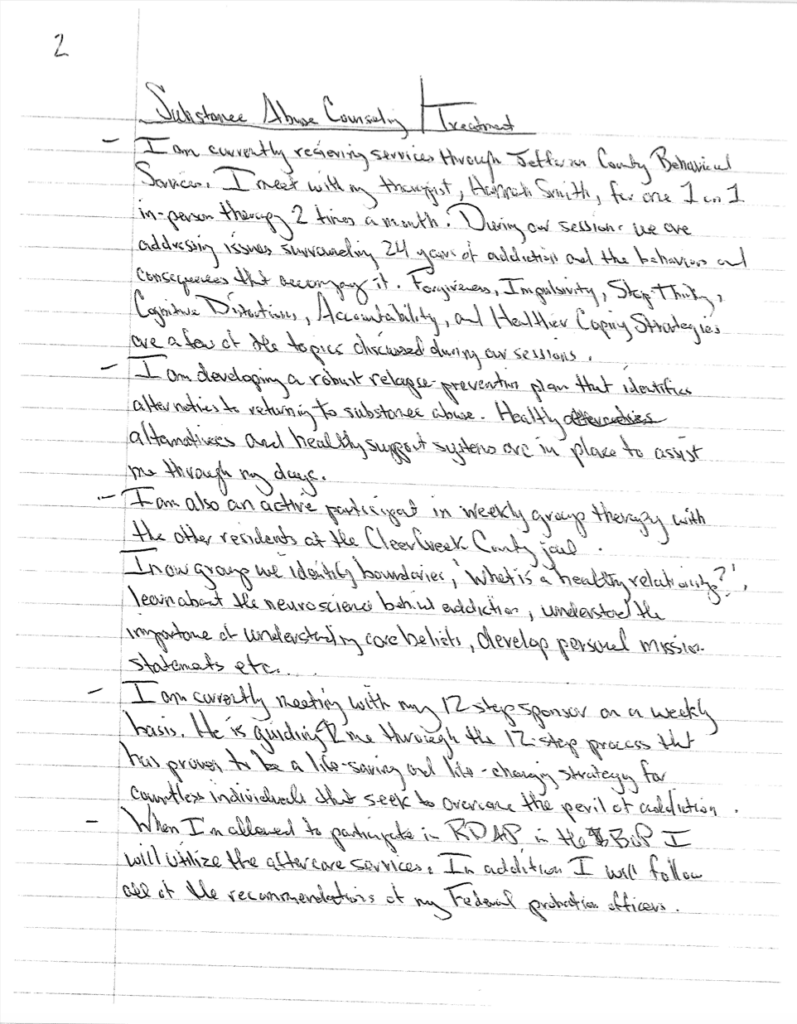 2
Substance Abuse Counseling / Treatment
- I am currently receiving services through Jefferson County Behavioral
Services. I meet with my therapist, Hannah Smith, for one 1 on 1
in-person therapy 2 times a month. During our sessions we are
addressing issues surrounding 24 years of addiction and the behaviors and
consequences that accompany it. Forgiveness, Impulsivity, Stop-Think,
Cognitive Distortions, Accountability, and Healthier Coping Strategies
are a few of the topics discussed during our sessions.
- I am developing a robust relapse-prevention plan that identifies
alternatives to returning to substance abuse. Healthy
alternatives and healthy support systems are in place to assist
me through my days.
- I am also an active participant in weekly group therapy with
the other residents at the Clear Creek County jail.
In our group we identify boundaries, 'what is a healthy relationship?',
learn about the neuroscience behind addiction, understand the
importance of understanding core beliefs, develop personal mission
statements etc....
- I am currently meeting with my 12 step sponsor on a weekly
basis. He is guiding me through the 12-step process that
has proven to be a life-saving and life-changing strategy for
countless individuals that seek to overcome the peril of addiction.
- When I'm allowed to participate in RDAP in the BOP I
will utilize the aftercare services. In addition I will follow
all of the recommendations of my Federal probation officers.